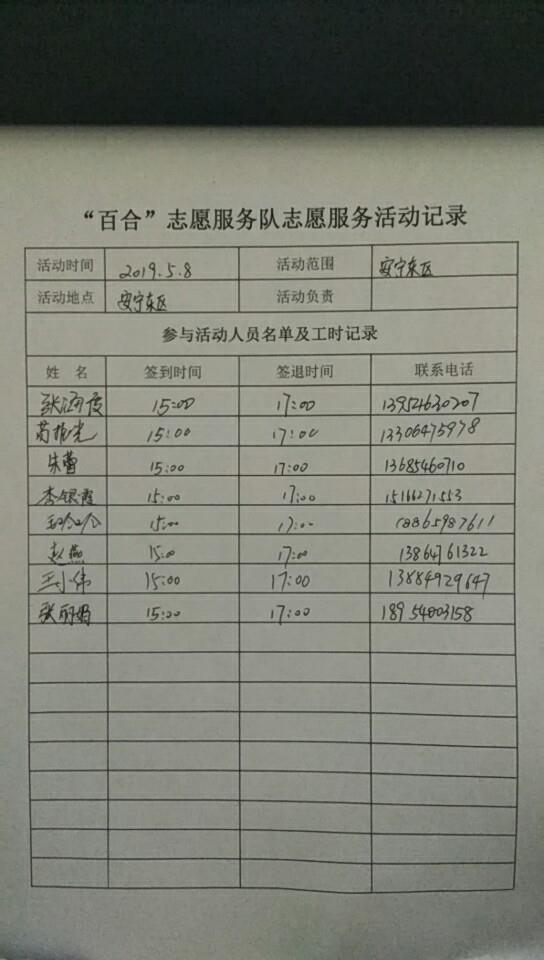 “百合”志愿服务队志愿服务活动记录
活动时间 2019.5.8 活动范围 安宁东区
活动地点 安宁东区 活动负责
参与活动人员名单及工时记录
姓 名 签到时间 签退时间 联系电话
张 霞 15:00 17:00 13954630207
15:00 17:00 13306475978
朱蕾 15:00 17:00 13685460710
李银霞 15:00 17:00 15166271553
15:00 17:00 18865987611
赵燕 15:00 17:00 13864761322
王小伟 15:00 17:00 13884929647
张丽娟 15:00 17:00 18954003158